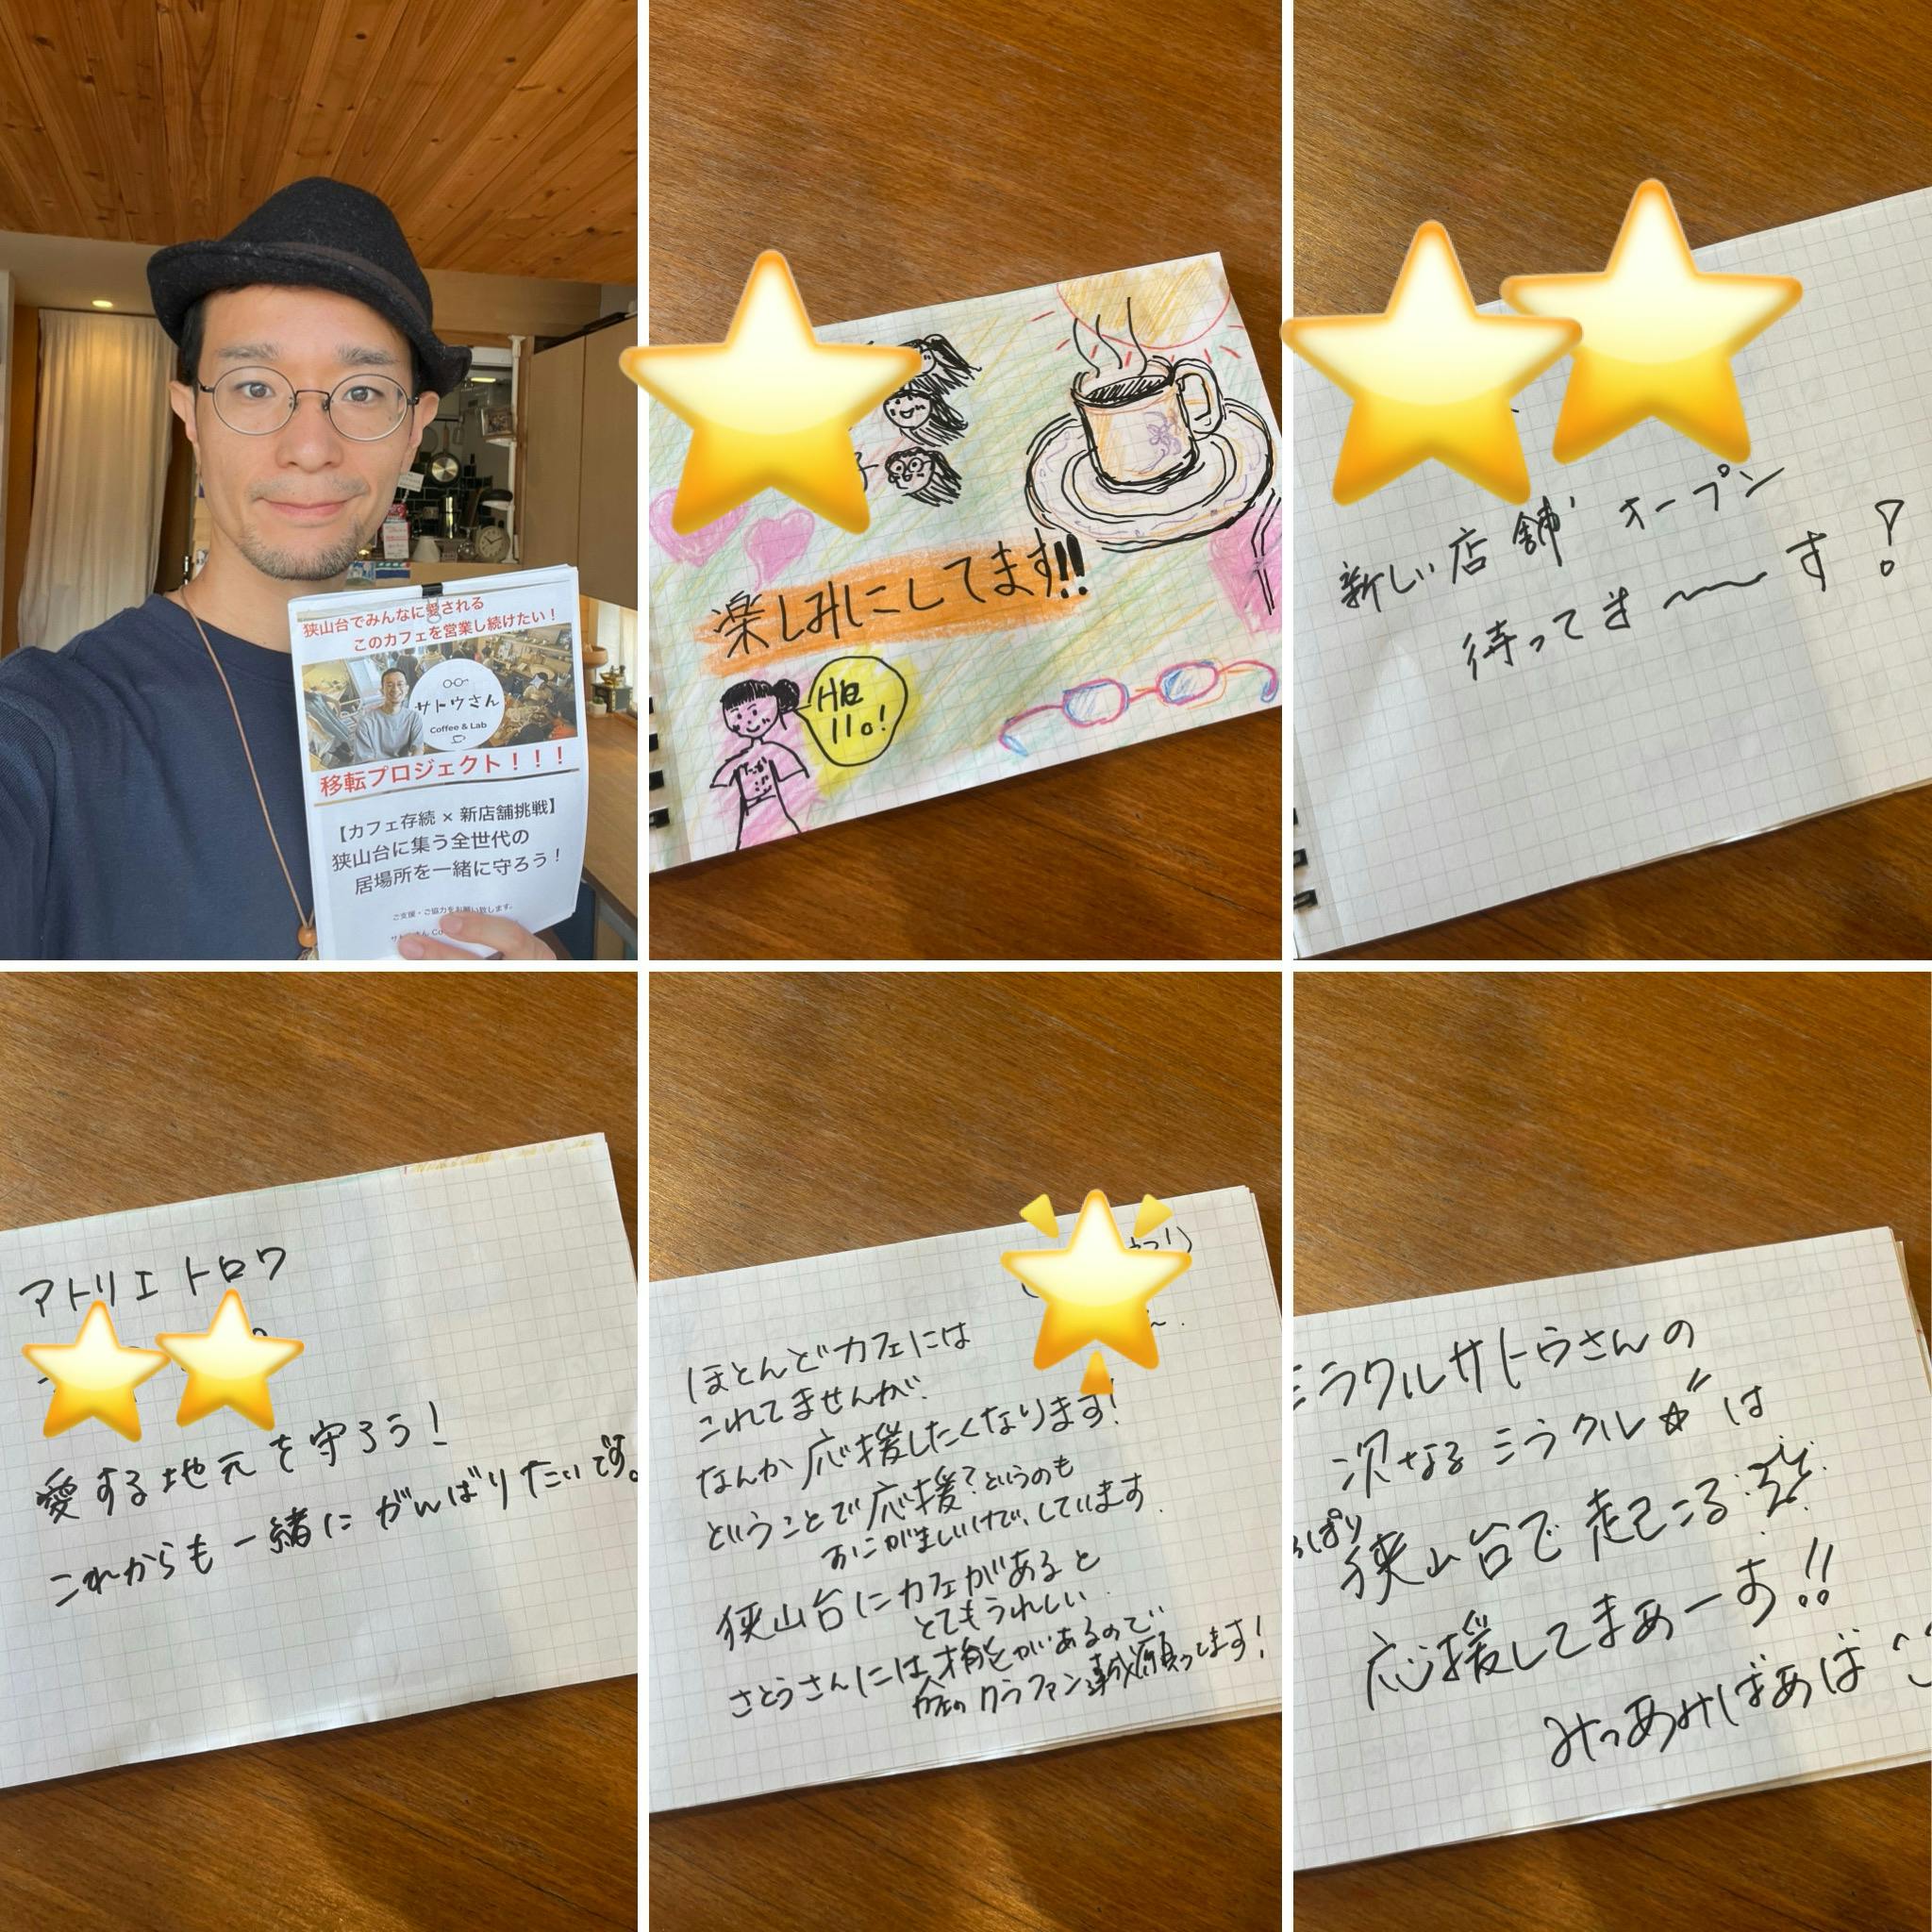 狭山台でみんなに愛される
このカフェを営業し続けたい！
サトウさん
Coffee & Lab
移転プロジェクト！！！
【カフェ存続 × 新店舗挑戦】
狭山台に集う全世代の
居場所を一緒に守ろう！
ご支援・ご協力をお願い致します。
楽しみにしてます!!
HE
llo!
新しい店舗 オープン
待ってま〜〜す！
アトリエ トロワ
愛する地元を守ろう！
これからも一緒にがんばりたいです。
ほとんどカフェには
これてませんが、
なんか応援したくなります！
ということで応援？というのも
おこがましいけど、しています.
狭山台にカフェがあると
とてもうれしい.
さとうさんには才能があるので
クラファン達成願ってます！
ミラクルサトウさんの
次なるミラクル☆は
狭山台で起こる
応援してまぁーす!!
みつあみばあば